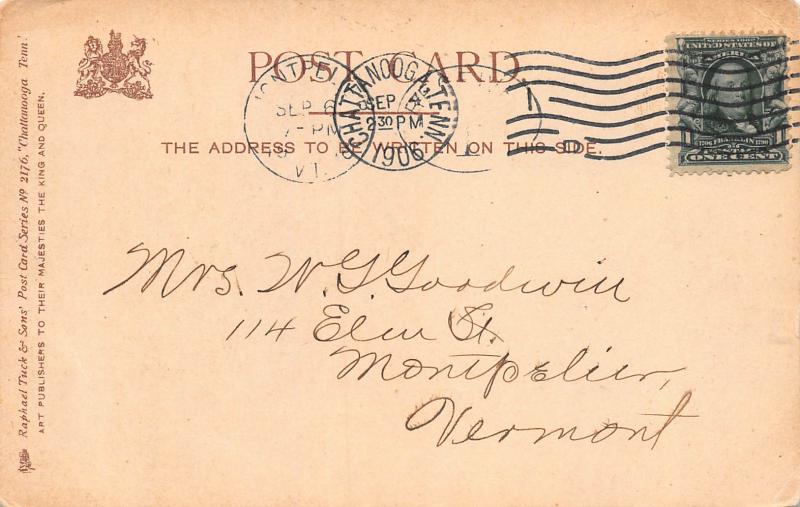 POST CARD
THE ADDRESS TO BE WRITTEN ON THIS SIDE.
CHATTANOOGA, TENN
SEP
2 30 PM
1906
SEP 6
7 - PM
VT.
SERIES 1902
UNITED STATES OF AMERICA
1706 FRANKLIN 1790
ONE CENT
Mrs. W G Goodwin
114 Elm St.
Montpelier,
Vermont
Raphael Tuck & Sons' Post Card Series Nº 2176, "Chattanooga Tenn."
ART PUBLISHERS TO THEIR MAJESTIES THE KING AND QUEEN.